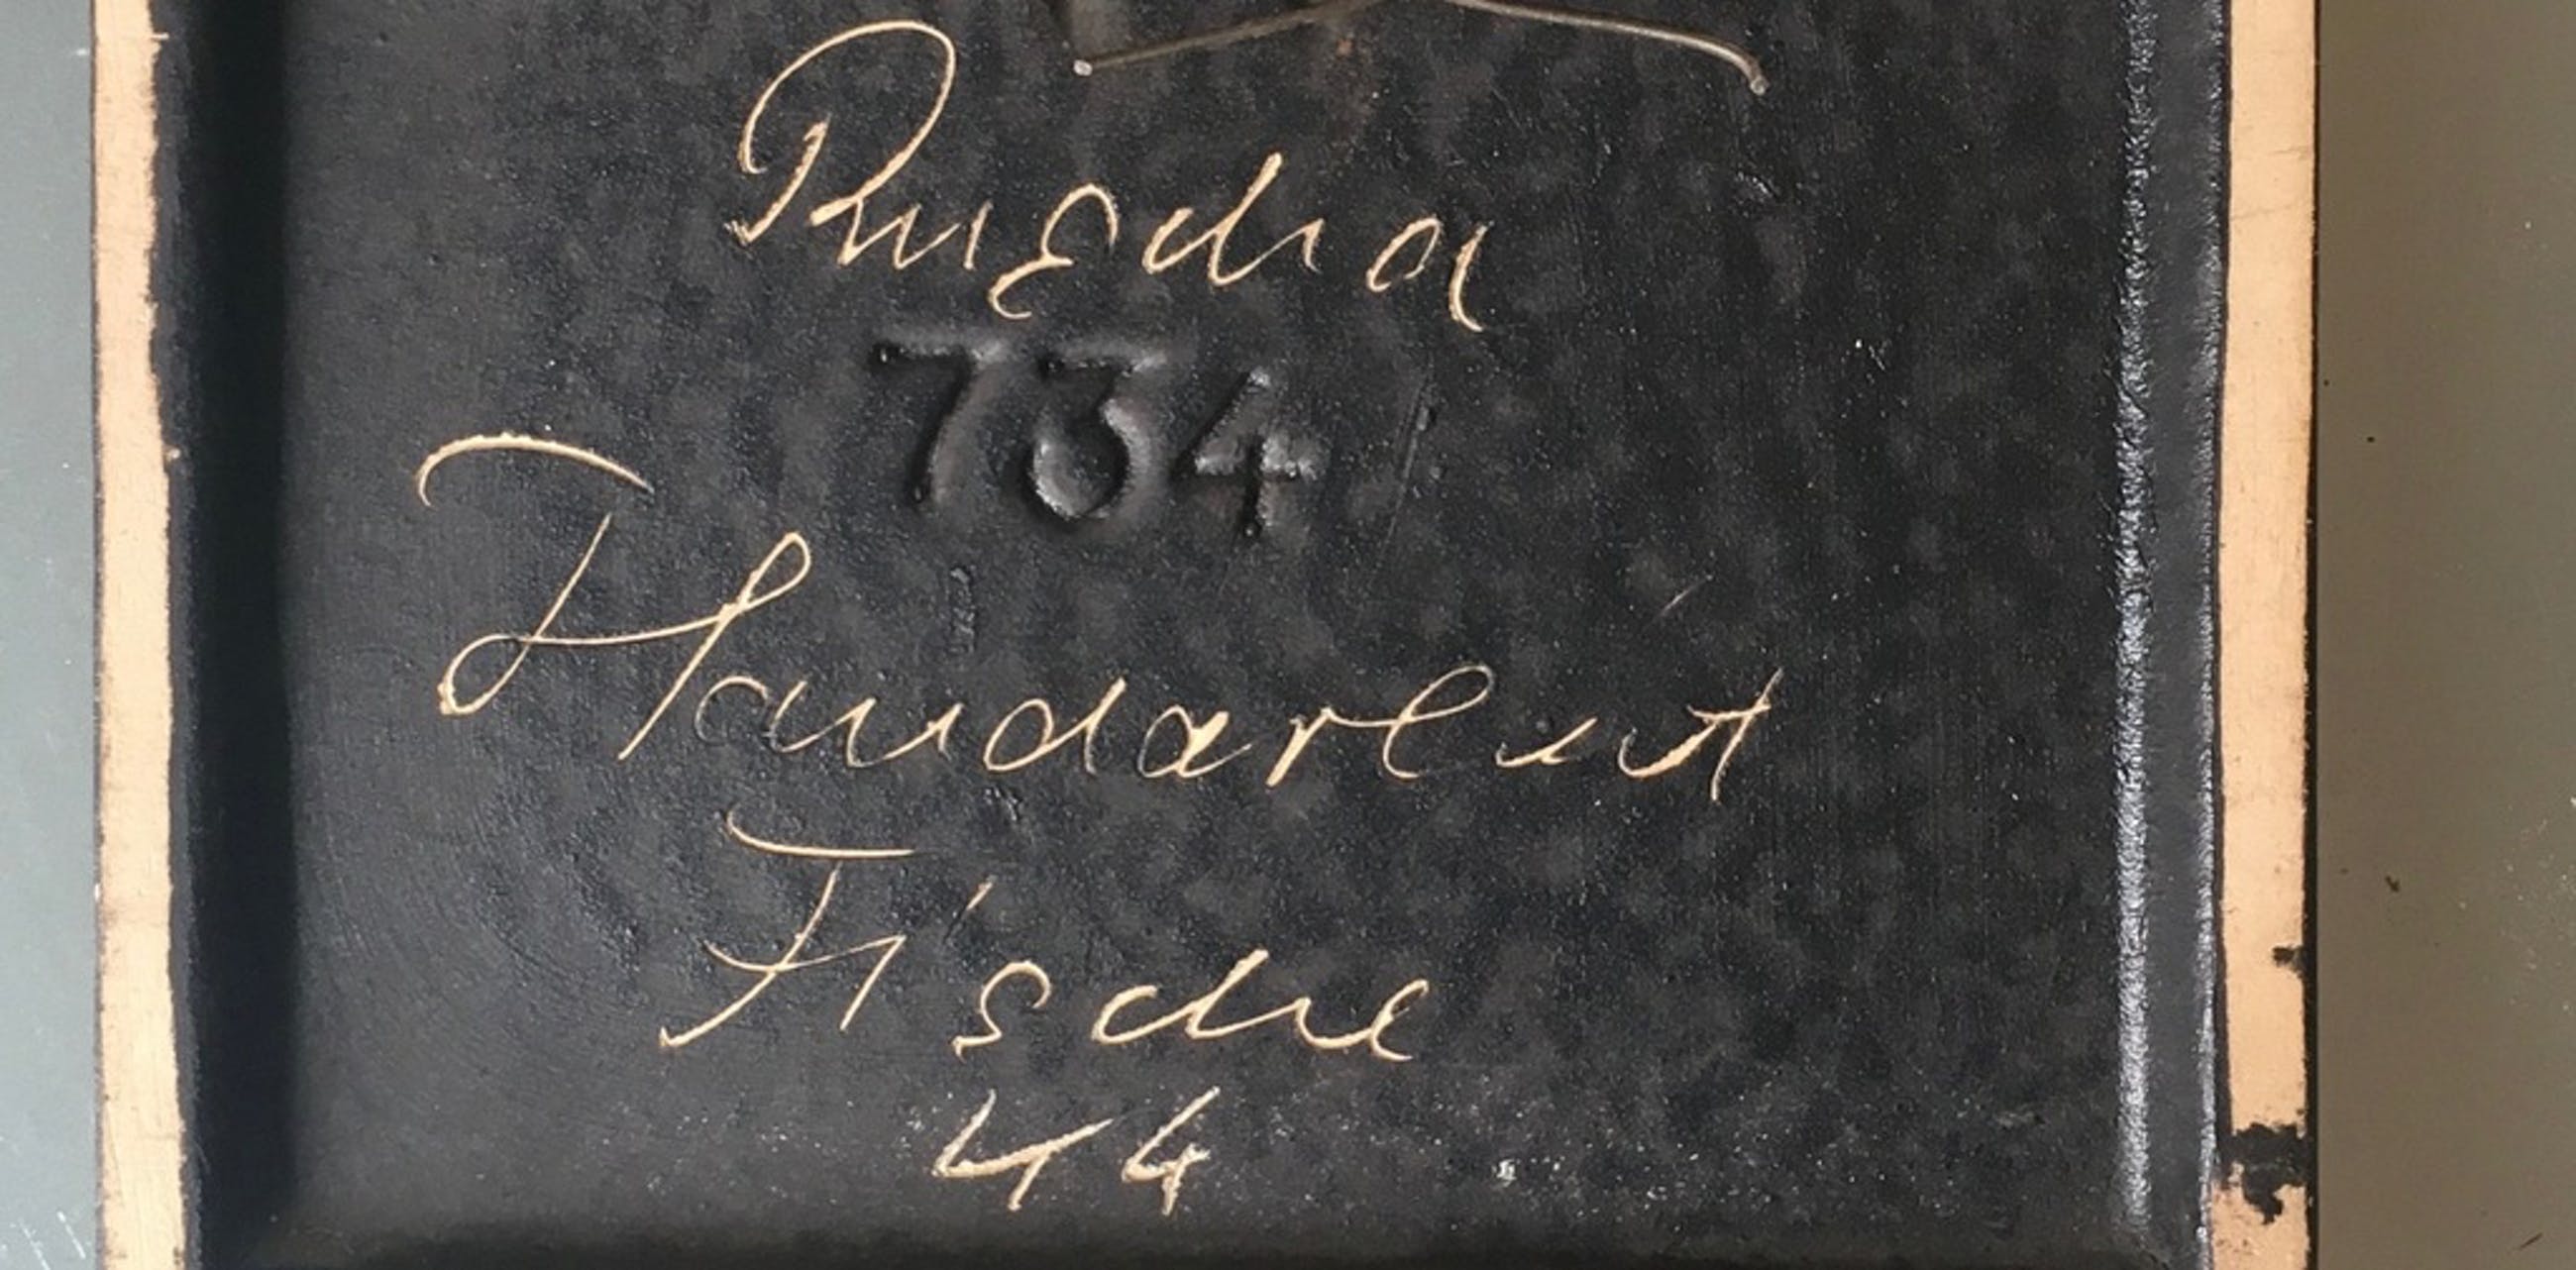 Ruscha
734
Handarbeit
Fische
44